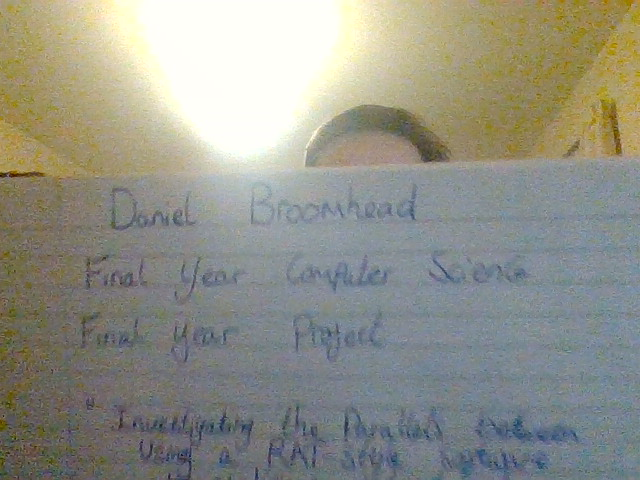 Daniel Broomhead
Final Year Computer Science
Final year Project
"Investigating the Parallels between
Using a